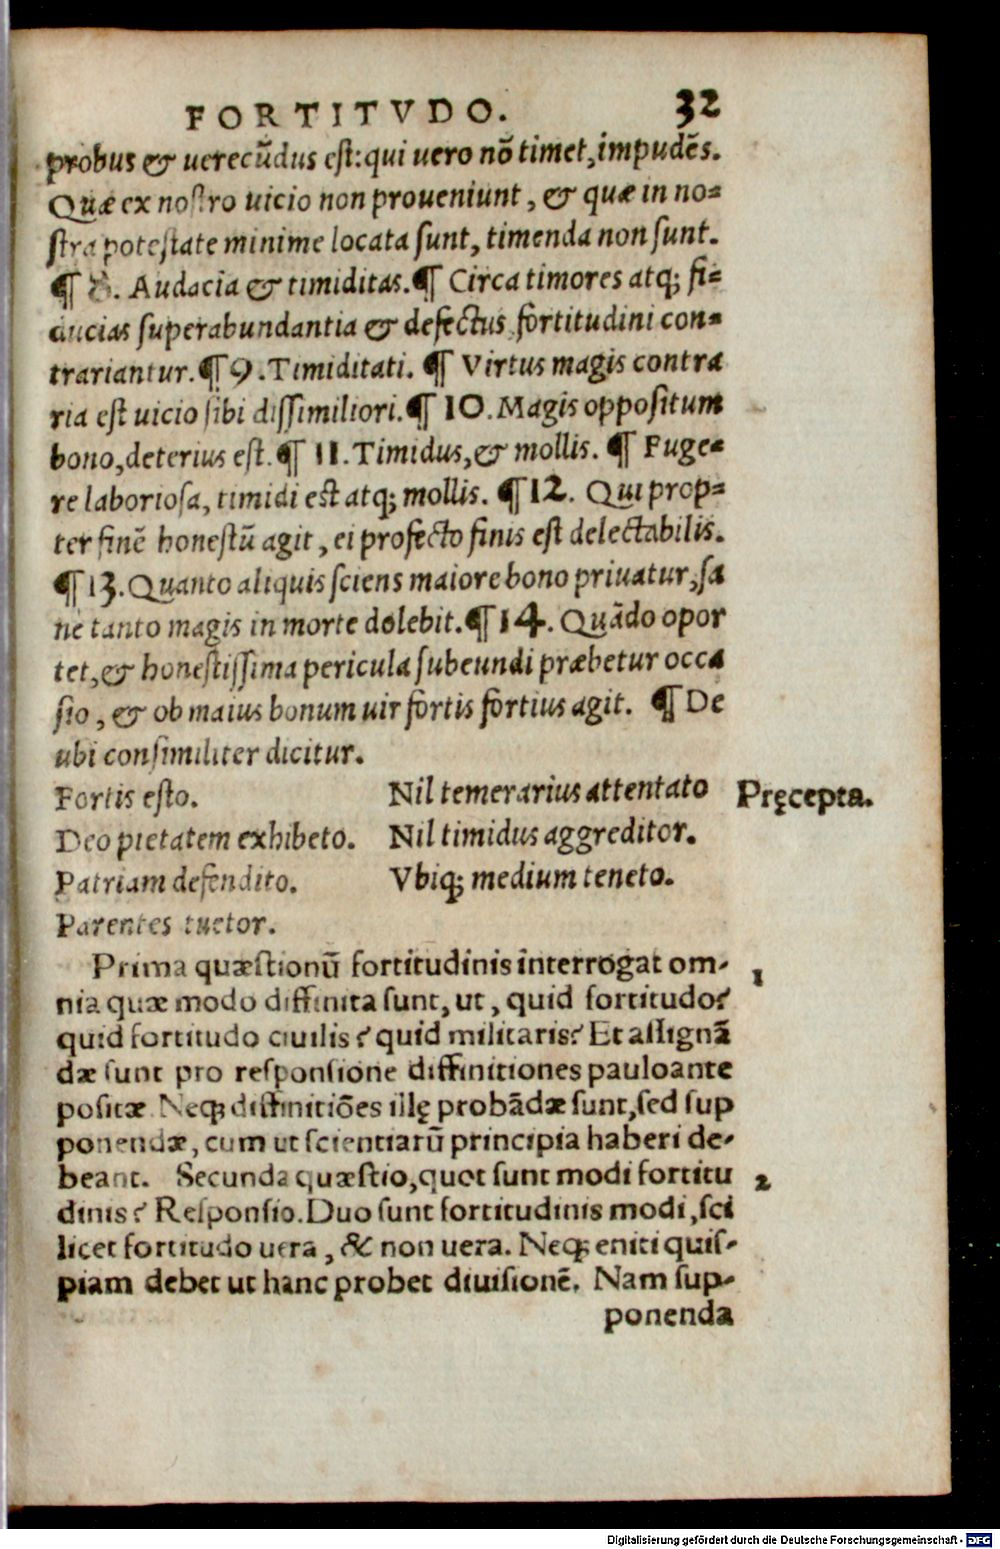 FORTITVDO. 32
probus & uerecūdus est: qui uero nō timet, impudēs.
Quæ ex nostro uicio non proueniunt, & quæ in no=
stra potestate minime locata sunt, timenda non sunt.
¶ 8. Audacia & timiditas. ¶ Circa timores atq; fi=
ducias superabundantia & defectus fortitudini con=
trariantur. ¶ 9. Timiditati. ¶ Virtus magis contra
ria est uicio sibi dissimiliori. ¶ 10. Magis oppositum
bono, deterius est. ¶ 11. Timidus, & mollis. ¶ Fuge=
re laboriosa, timidi est atq; mollis. ¶ 12. Qui prop=
ter finē honestū agit, ei profecto finis est delectabilis.
¶ 13. Quanto aliquis sciens maiore bono priuatur, sa
ne tanto magis in morte dolebit. ¶ 14. Quādo opor
tet, & honestissima pericula subeundi præbetur occa
sio, & ob maius bonum uir fortis fortius agit. ¶ De
ubi consimiliter dicitur.
Fortis esto. Nil temerarius attentato Pręcepta.
Deo pietatem exhibeto. Nil timidus aggreditor.
Patriam defendito. Vbiq; medium teneto.
Parentes tuetor.
Prima quæstionū fortitudinis interrogat om- 1
nia quæ modo diffinita sunt, ut, quid fortitudo?
quid fortitudo ciuilis? quid militaris? Et assignā
dæ sunt pro responsione diffinitiones pauloante
positæ. Neq; diffinitiōes illę probādæ sunt, sed sup
ponendæ, cum ut scientiarū principia haberi de-
beant. Secunda quæstio, quot sunt modi fortitu 2
dinis? Responsio. Duo sunt fortitudinis modi, sci
licet fortitudo uera, & non uera. Neq; eniti quis-
piam debet ut hanc probet diuisionē. Nam sup-
ponenda
Digitalisierung gefördert durch die Deutsche Forschungsgemeinschaft - DFG